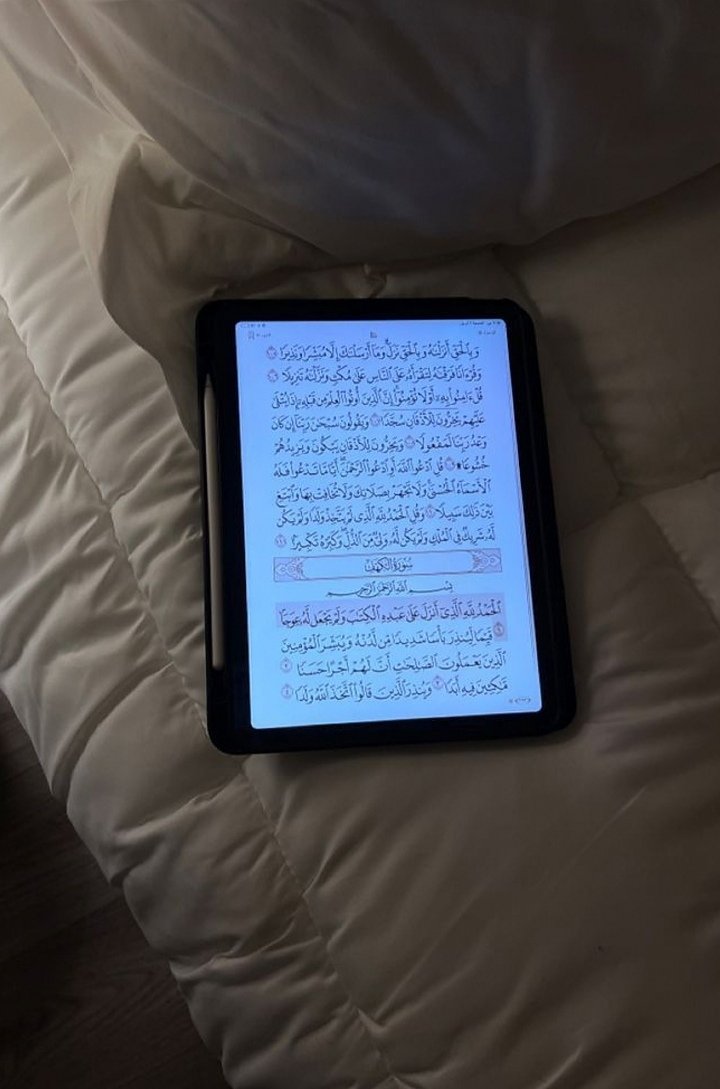 وَبِٱلْحَقِّ أَنزَلْنَٰهُ وَبِٱلْحَقِّ نَزَلَ ۗ وَمَآ أَرْسَلْنَٰكَ إِلَّا مُبَشِّرًا وَنَذِيرًا ١٠٥
وَقُرْءَانًا فَرَقْنَٰهُ لِتَقْرَأَهُۥ عَلَى ٱلنَّاسِ عَلَىٰ مُكْثٍ وَنَزَّلْنَٰهُ تَنزِيلًا ١٠٦
قُلْ ءَامِنُوا۟ بِهِۦٓ أَوْ لَا تُؤْمِنُوٓا۟ ۚ إِنَّ ٱلَّذِينَ أُوتُوا۟ ٱلْعِلْمَ مِن قَبْلِهِۦٓ إِذَا يُتْلَىٰ
عَلَيْهِمْ يَخِرُّونَ لِلْأَذْقَانِ سُجَّدًا ١٠٧ وَيَقُولُونَ سُبْحَٰنَ رَبِّنَآ إِن كَانَ
وَعْدُ رَبِّنَا لَمَفْعُولًا ١٠٨ وَيَخِرُّونَ لِلْأَذْقَانِ يَبْكُونَ وَيَزِيدُهُمْ
خُشُوعًا ۩ ١٠٩ قُلِ ٱدْعُوا۟ ٱللَّهَ أَوِ ٱدْعُوا۟ ٱلرَّحْمَٰنَ ۖ أَيًّا مَّا تَدْعُوا۟ فَلَهُ
ٱلْأَسْمَآءُ ٱلْحُسْنَىٰ ۚ وَلَا تَجْهَرْ بِصَلَاتِكَ وَلَا تُخَافِتْ بِهَا وَٱبْتَغِ
بَيْنَ ذَٰلِكَ سَبِيلًا ١١٠ وَقُلِ ٱلْحَمْدُ لِلَّهِ ٱلَّذِى لَمْ يَتَّخِذْ وَلَدًا وَلَمْ يَكُن
لَّهُۥ شَرِيكٌ فِى ٱلْمُلْكِ وَلَمْ يَكُن لَّهُۥ وَلِىٌّ مِّنَ ٱلذُّلِّ ۖ وَكَبِّرْهُ تَكْبِيرًۢا ١١١
سُورَةُ الكَهْفِ
بِسْمِ ٱللَّهِ ٱلرَّحْمَٰنِ ٱلرَّحِيمِ
ٱلْحَمْدُ لِلَّهِ ٱلَّذِىٓ أَنزَلَ عَلَىٰ عَبْدِهِ ٱلْكِتَٰبَ وَلَمْ يَجْعَل لَّهُۥ عِوَجَا
١ قَيِّمًا لِّيُنذِرَ بَأْسًا شَدِيدًا مِّن لَّدُنْهُ وَيُبَشِّرَ ٱلْمُؤْمِنِينَ
ٱلَّذِينَ يَعْمَلُونَ ٱلصَّٰلِحَٰتِ أَنَّ لَهُمْ أَجْرًا حَسَنًا ٢
مَّٰكِثِينَ فِيهِ أَبَدًا ٣ وَيُنذِرَ ٱلَّذِينَ قَالُوا۟ ٱتَّخَذَ ٱللَّهُ وَلَدًا ٤